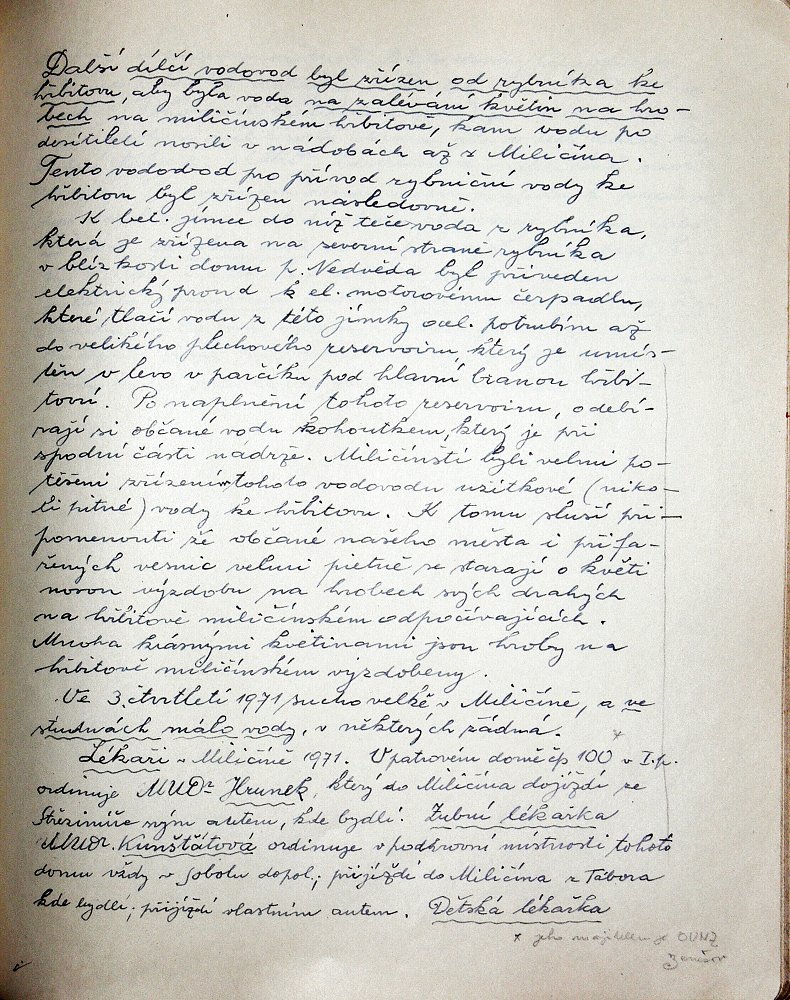 Další dílčí vodovod byl zřízen od rybníka ke
hřbitovu, aby byla voda na zalévání květin na hro-
bech na miličínském hřbitově, kam vodu po
desítiletí nosili v nádobách až z Miličína.
Tento vodovod pro přívod rybniční vody ke
hřbitovu byl zřízen následovně.
K bet. jímce do níž teče voda z rybníka,
která je zřízena na severní straně rybníka
v blízkosti domu p. Nedvěda byl přiveden
elektrický proud k el. motorovému čerpadlu,
které tlačí vodu z této jímky ocel. potrubím až
do velikého plechového reservoiru, který je umís-
těn v levo v parčíku pod hlavní branou hřbi-
tovní. Po naplnění tohoto reservoiru, odebí-
rají si občané vodu kohoutkem, který je při
spodní části nádrže. Miličínští byli velmi po-
těšeni zřízením tohoto vodovodu užitkové (niko-
li pitné) vody ke hřbitovu. K tomu sluší při-
pomenouti že občané našeho města i přifa-
řených vesnic velmi pietně se starají o květi
novou výzdobu na hrobech svých drahých
na hřbitově miličínském odpočívajících.
Mnoha krásnými květinami jsou hroby na
hřbitově miličínském vyzdobeny.
Ve 3. čtvrtletí 1971 sucho velké v Miličíně, a ve
studnách málo vody, v některých žádná.
Lékaři v Miličíně 1971. V patrovém domě čp 100 v I.p.
ordinuje MUDr Hrunek, který do Miličína dojíždí ze
Střezimíře svým autem, kde bydlí. Zubní lékařka
MUDr. Kunštátová ordinuje v podkrovní místnosti tohoto
domu vždy v sobotu dopol.; přijíždí do Miličína z Tábora
kde bydlí; přijíždí vlastním autem. Dětská lékařka
x jeho majitelem je OUNZ
Benešov